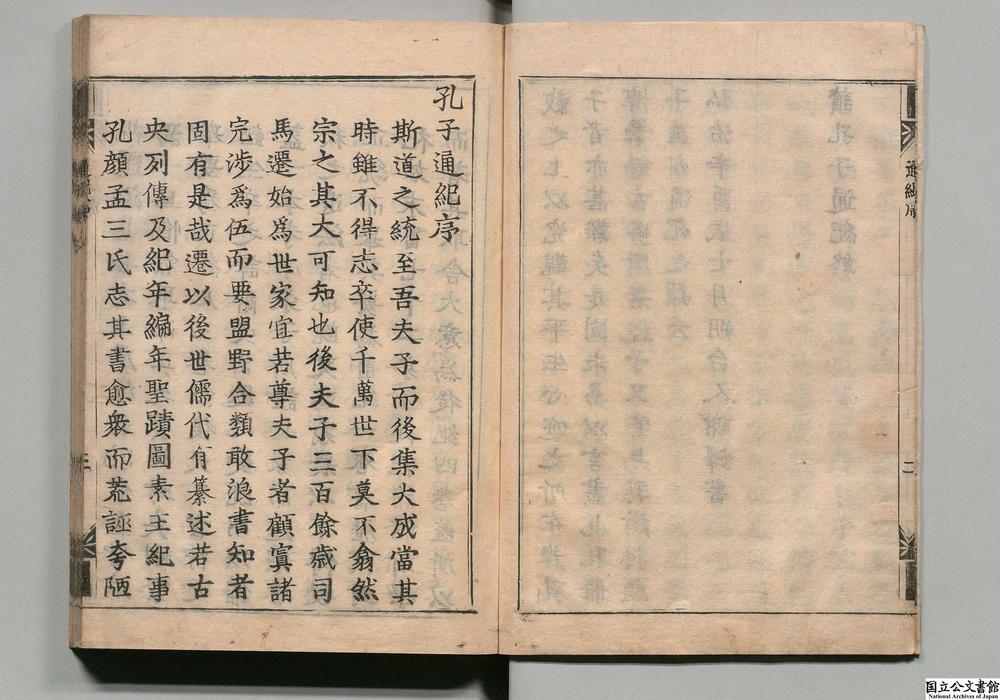 通紀序
二
孔子通紀序
斯道之統至吾夫子而後集大成當其
時雖不得志卒使千萬世下莫不翕然
宗之其大可知也後夫子三百餘歲司
馬遷始爲世家宜若尊夫子者顧寘諸
完涉爲伍而要盟野合類敢浪書知者
固有是哉遷以後世儒代有纂述若古
史列傳及紀年編年聖蹟圖素王紀事
孔顏孟三氏志其書愈衆而荒誣夸陋
国立公文書館
National Archives of Japan